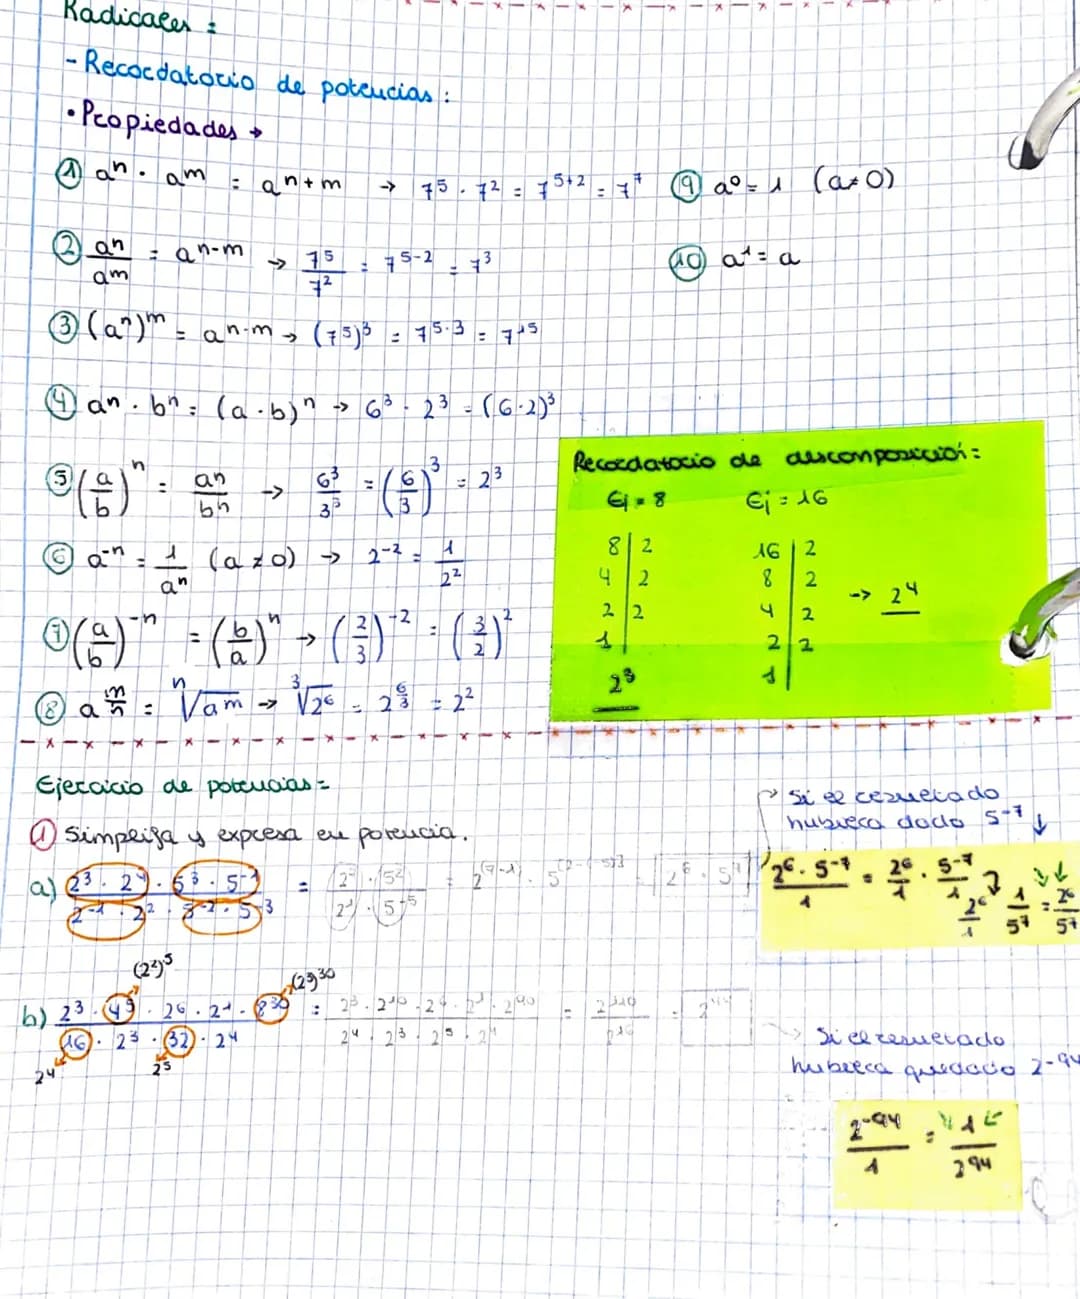 Radicales =
- Recordatorio de potencias :
• Propiedades →
① aⁿ · aᵐ = aⁿ⁺ᵐ → 7⁵ · 7² = 7⁵⁺² = 7⁷
⑨ a⁰ = 1 (a≠0)
② aⁿ/aᵐ = aⁿ⁻ᵐ → 7⁵/7² = 7⁵⁻² = 7³
⑩ a¹ = a
③ (aⁿ)ᵐ = aⁿ·ᵐ → (7⁵)³ = 7⁵·³ = 7¹⁵
④ aⁿ · bⁿ = (a · b)ⁿ → 6³ · 2³ = (6·2)³
⑤ (a/b)ⁿ = aⁿ/bⁿ → 6³/3³ = (6/3)³ = 2³
⑥ a⁻ⁿ = 1/aⁿ (a ≠ 0) → 2⁻² = 1/2²
⑦ (a/b)⁻ⁿ = (b/a)ⁿ → (2/3)⁻² = (3/2)²
⑧ a^(m/n) = ⁿ√aᵐ → ³√2⁶ = 2^(6/3) = 2²
Recordatorio de descomposición =
Ej = 8
8 | 2
4 | 2
2 | 2
1
2³
Ej = 16
16 | 2
8 | 2
4 | 2
2 | 2
1
→ 2⁴
Ejercicio de potencias =
① Simplifja y expresa en potencia.
a) (2³ · 2⁴ · 5³ · 5⁻¹)/(2⁻¹ · 2² · 5⁻² · 5⁻³) =
2⁶ · 5⁷
Si el resultado
hubiera dado 5⁻⁷ ↓
(2⁶ · 5⁻⁷)/1 = 2⁶/1 · 5⁻⁷/1
2⁶/1 1/5⁷ = 2⁶/5⁷
(2²)⁵
(2³)³⁰
b) (2³ · 4⁵ · 2⁶ · 2¹ · 8³⁰)/(16 · 2³ · 32 · 2⁴) =
2⁴
2⁵
Si el resultado
hubiera quedado 2⁻⁹⁴
2⁻⁹⁴/1 = 1/2⁹⁴